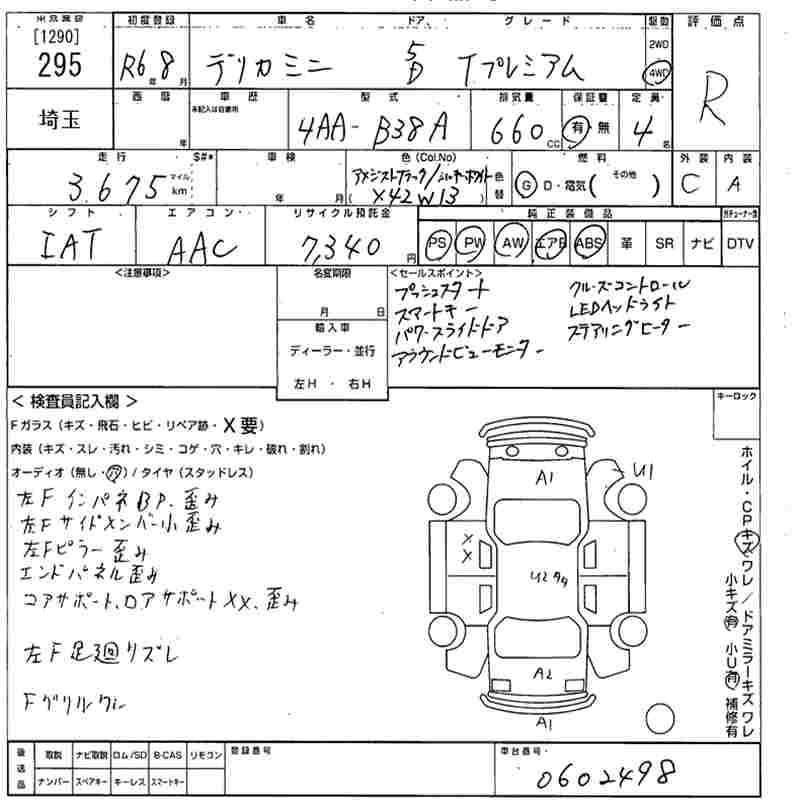 [1290]
295
埼玉
初度登録
R6 年 8 月
車名
デリカミニ
ドア
5
D
グレード
Tプレミアム
駆動
2WD
4WD
評価点
R
西暦
年
車歴
未記入は自家用
型式
4AA-B38A
排気量
660 CC
保証書
有・無
定員
4 名
走行
$#*
3.675
マイル
km
車検
年 月
色(Col.No)
アメジストブラック/
( X42W13 )
色替
燃料
G D・電気( その他 )
外装
C
内装
A
シフト
IAT
エアコン
AAC
リサイクル預託金
7,340 円
純正装備品
PS PW AW エアB ABS 革 SR ナビ DTV
<注意事項>
名変期限
月 日
輸入車
ディーラー・並行
左H・右H
<セールスポイント>
プッシュスタート
スマートキー
パワースライドドア
アラウンドビューモニター
クルーズコントロール
LEDヘッドライト
ステアリングヒーター
<検査員記入欄>
Fガラス(キズ・飛石・ヒビ・リペア跡・X要)
内装(キズ・スレ・汚れ・シミ・コゲ・穴・キレ・破れ・割れ)
オーディオ(無し・穴)/タイヤ(スタッドレス)
左FインパネBP、歪み
左Fサイドメンバー小歪み
左Fピラー歪み
エンドパネル歪み
コアサポート、ロアサポートXX、歪み
左F足廻りズレ
Fグリルワレ
キーロック
A1
U1
X
X
A2
A1
ホイル・CPキズワレ/ドアミラーキズワレ
小キズ有 小U有 補修有
後送品
取説 ナビ取説 ロム/SD B-CAS リモコン
ナンバー スペアキー キーレス スマートキー
登録番号
車台番号
0602498